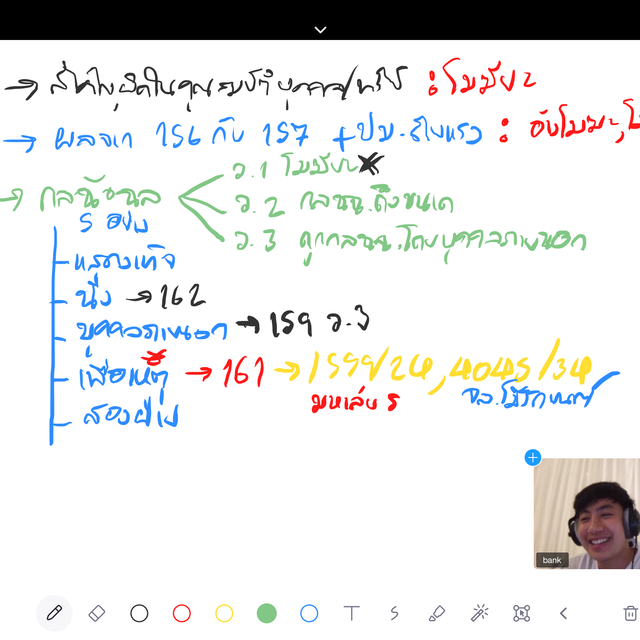 → สำคัญผิดในคุณสมบัติบุคคล/ทรัพย์ : โมฆียะ
→ ผลจาก 156 กับ 157 + ปม.ร้ายแรง : อันโมฆะ,
→ กลฉ้อฉล
ว.1 โมฆียะ
ว.2 กลฉฉ.ถึงขนาด
ว.3 ถูกกลฉฉ.โดยบุคคลภายนอก
5 อย่าง
หลอกเท็จ
นิ่ง → 162
บุคคลภายนอก → 159 ว.3
เพื่อเหตุ → 161 → 1599/24, 4045/34
สองฝ่าย
bank
T